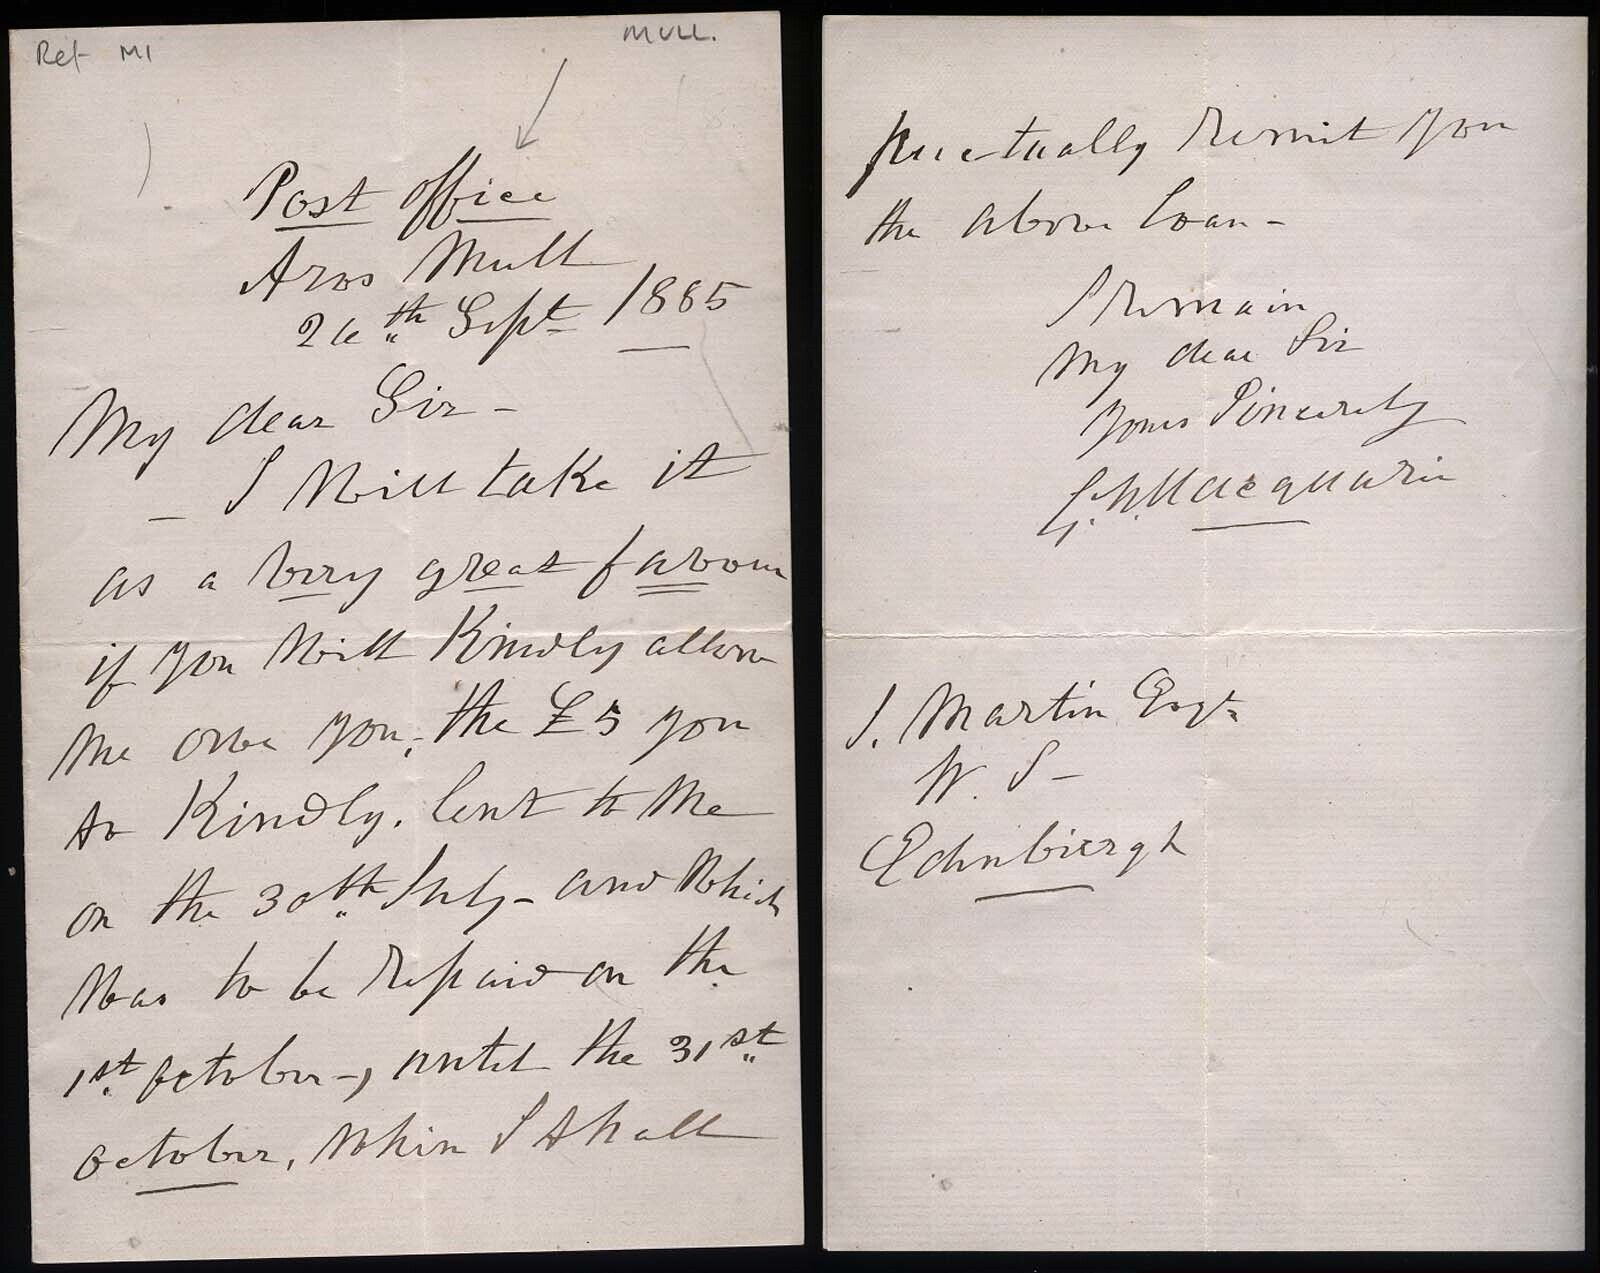 Ref M1
MULL.
Post office
Aros Mull
26th Sept 1885
My dear Sir -
- I Will take it
as a very great favour
if you Will Kindly allow
me owe you, the £5 you
so Kindly. lent to Me
on the 30th July - and Which
Was to be repaid on the
1st October -, until the 31st
October, When I shall
punctually remit you
the above loan -
I remain
My dear Sir
Yours Sincerely
Macquarie
J. Martin Esqr
W. S -
Edinburgh